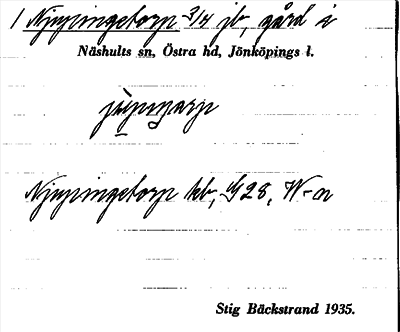 1 Njupingetorp 3/4 jb, gård i
Näshults sn, Östra hd, Jönköpings l.
Njupingetorp kb, G28, W-a
Stig Bäckstrand 1935.